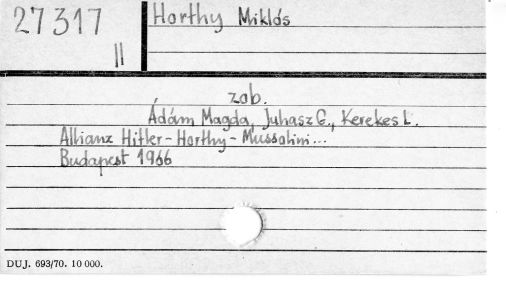 27317
II
Horthy Miklós
zob.
Ádám Magda, Juhasz G., Kerekes L.
Allianz Hitler-Horthy-Mussolini...
Budapest 1966
DUJ. 693/70. 10 000.